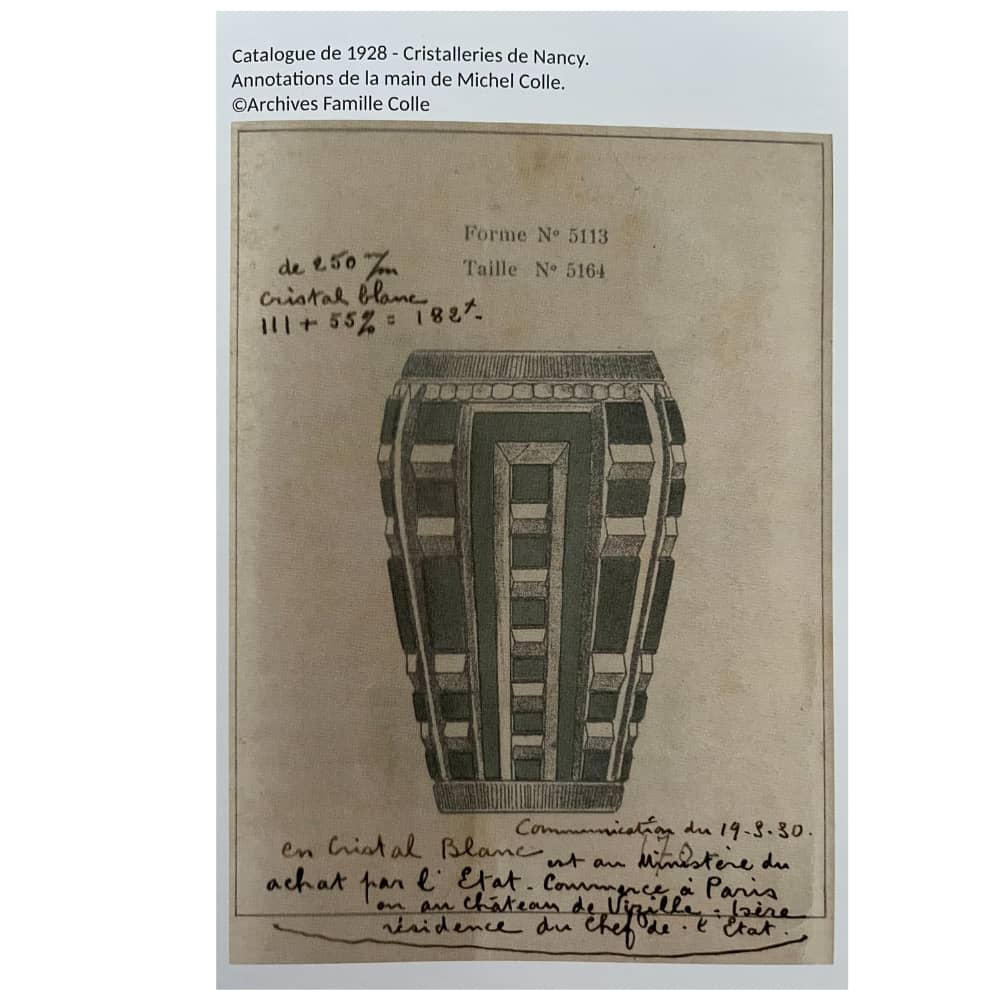 Catalogue de 1928 - Cristalleries de Nancy.
Annotations de la main de Michel Colle.
©Archives Famille Colle
Forme Nº 5113
Taille Nº 5164
de 250 m/m
cristal blanc
111 + 55% = 182
Communication du 19-9-30.
en Cristal Blanc est au Ministère du
achat par l'Etat. Commerce à Paris
ou au Château de Vizille : Isère
résidence du Chef de l'Etat.